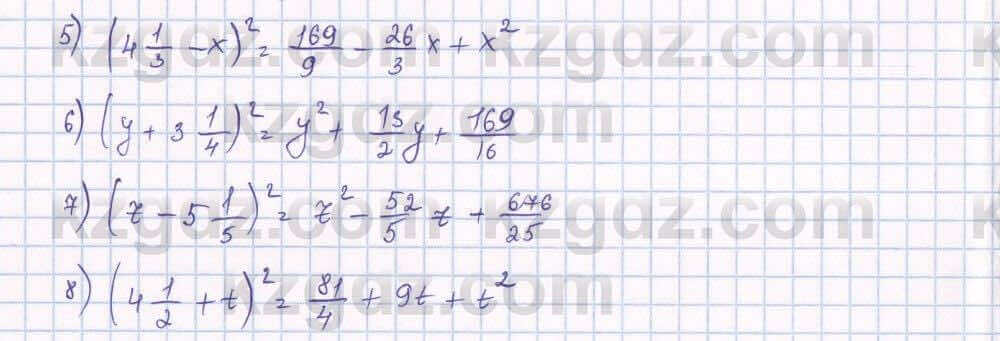 5) (4 1/3 - x)² = 169/9 - 26/3 x + x²
6) (y + 3 1/4)² = y² + 13/2 y + 169/16
7) (z - 5 1/5)² = z² - 52/5 z + 676/25
8) (4 1/2 + t)² = 81/4 + 9t + t²
kzgdz.com